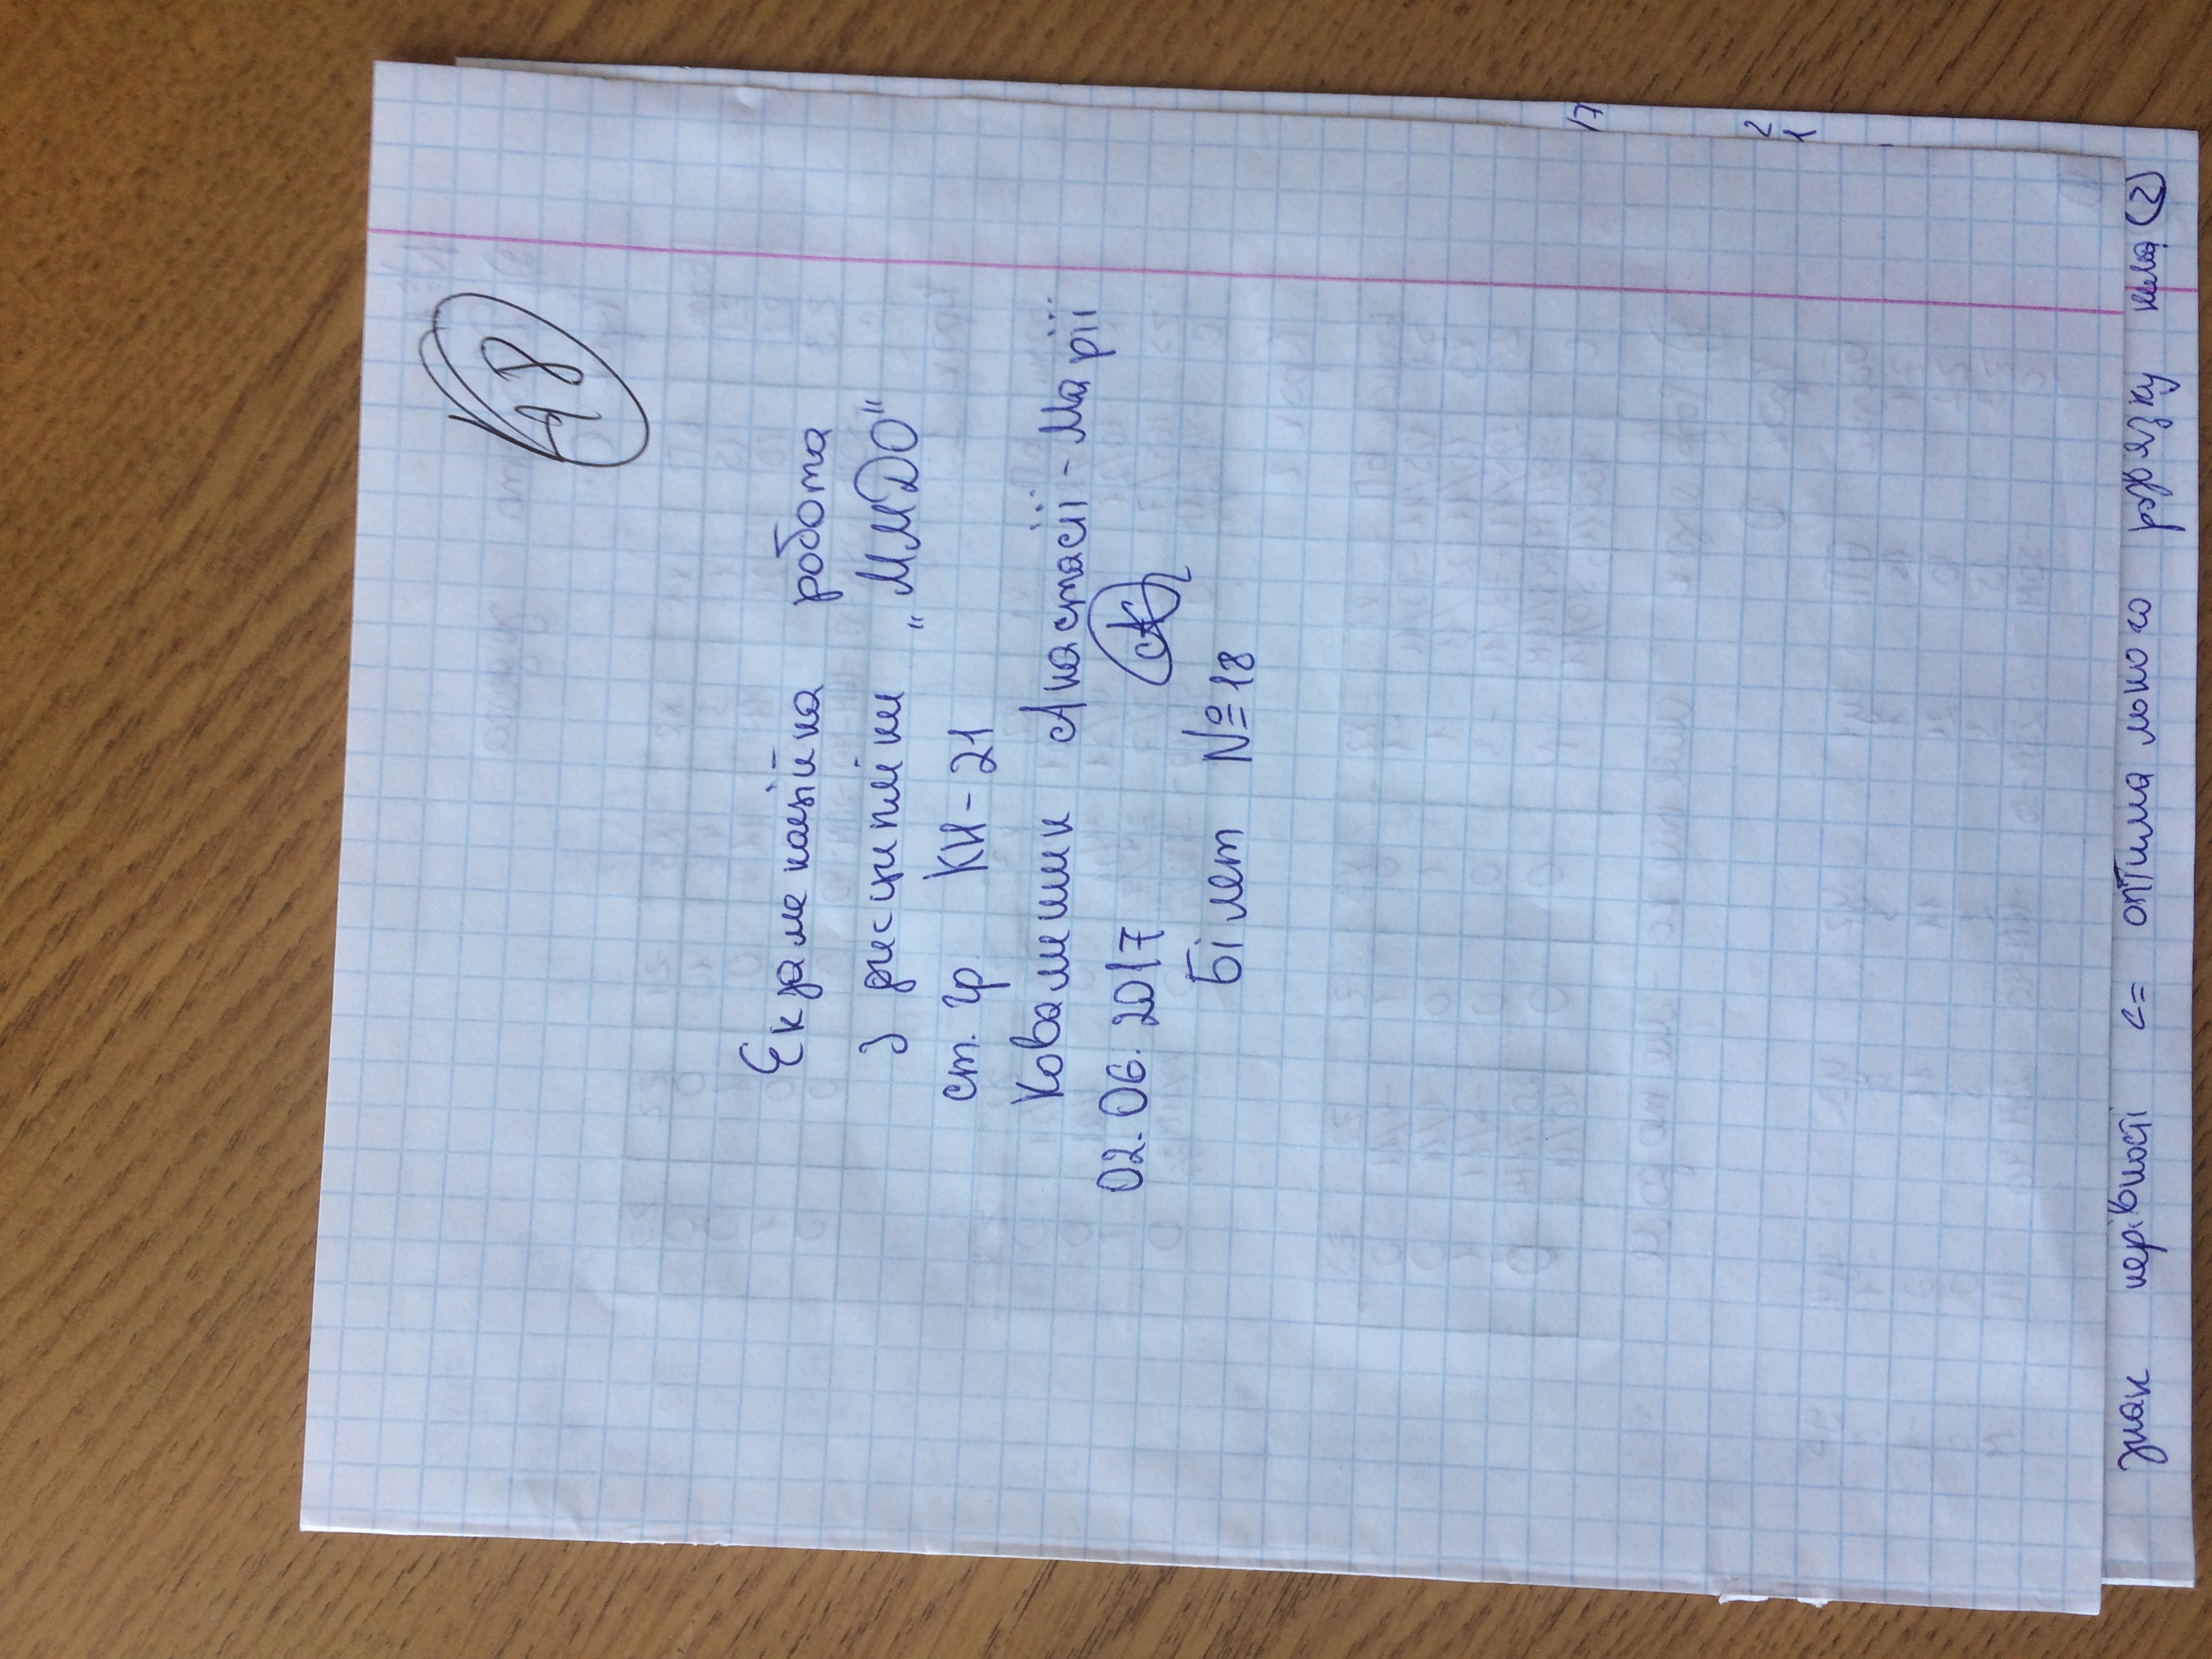 48
Екзаменаційна робота
з дисципліни „ММДО"
ст. гр. КН-21
Ковалишин Анастасії-Марії
02.06.2017
Білет №18
17
2
1
знак нерівності <= оптимального розв'язку нема (2)